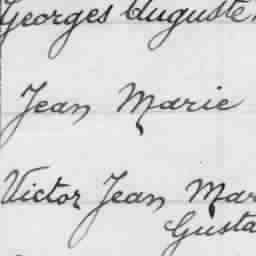 Georges Auguste
Jean Marie
Victor Jean Mar
Gusta